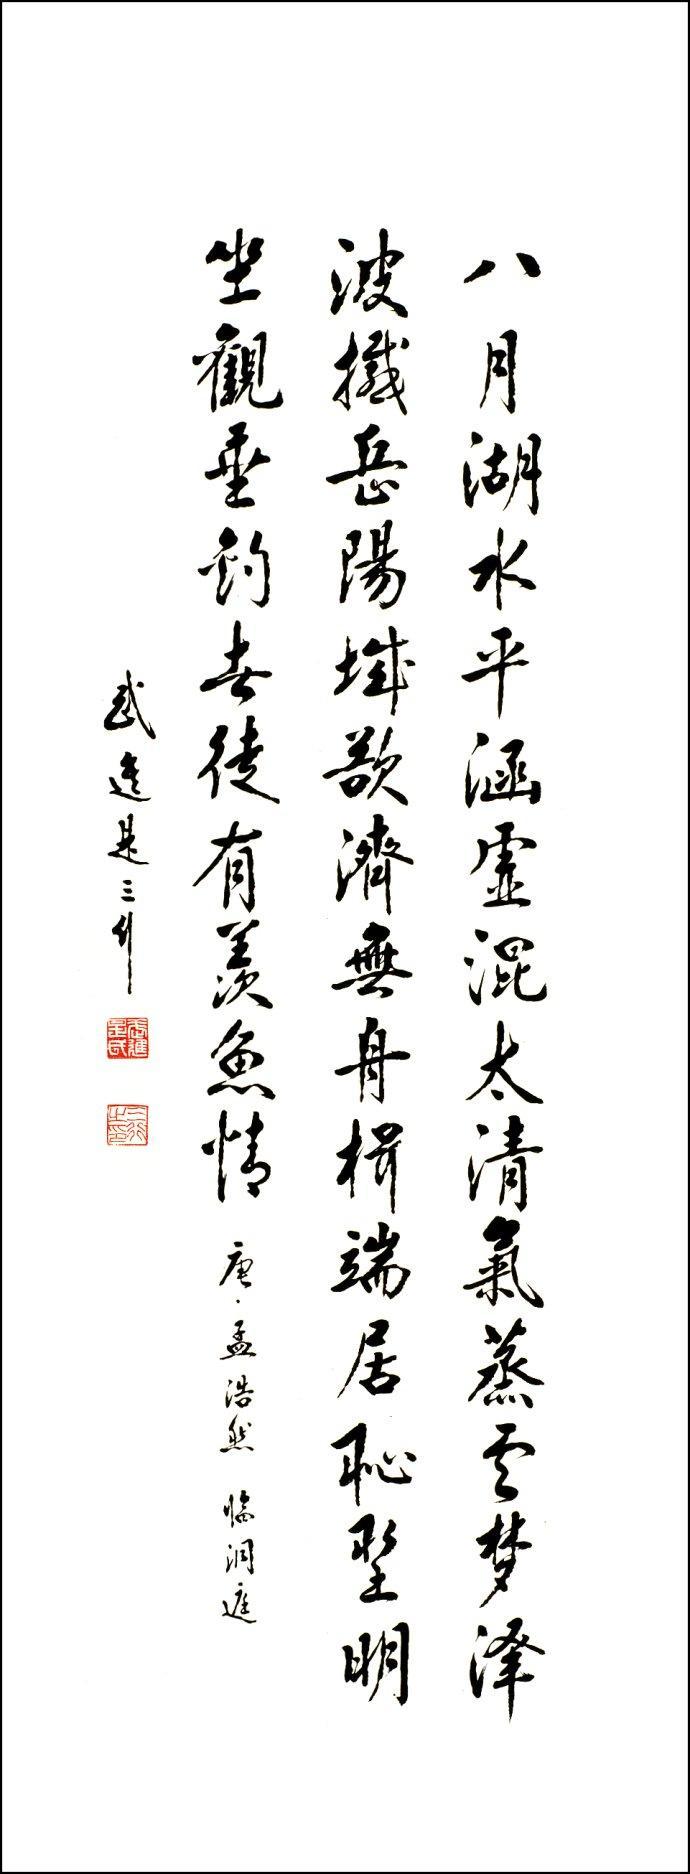 八月湖水平涵虛混太清氣蒸雲梦澤
波撼岳陽城欲濟無舟楫端居恥聖明
坐觀垂釣者徒有羨魚情
唐·孟浩然 臨洞庭
武進是三升
武進是氏